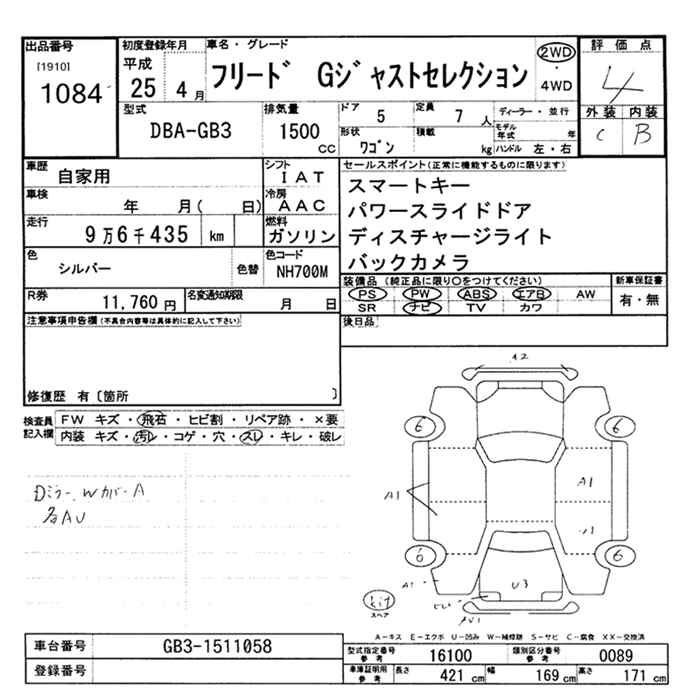 出品番号
[1910]
1084
初度登録年月
平成
25 4月
車名・グレード
フリード Gジャストセレクション
2WD
・
4WD
評価点
4
外装 内装
C B
型式
DBA-GB3
排気量
1500 cc
ドア 5
定員 7 人
形状 ワゴン
積載 kg
ディーラー・並行
モデル年式 年
ハンドル 左・右
車歴
自家用
シフト
IAT
車検
年 月( 日)
冷房
AAC
走行
9万6千435 km
燃料
ガソリン
色
シルバー
色替
色コード
NH700M
セールスポイント(正常に機能するものに限ります)
スマートキー
パワースライドドア
ディスチャージライト
バックカメラ
R券
11,760 円
名変通知期限
月 日
装備品(純正品に限り○をつけてください)
PS PW ABS エアB AW
SR ナビ TV カワ
新車保証書
有・無
注意事項申告欄(不具合内容等は具体的に記入して下さい)
後日品
修復歴 有〔箇所 〕
検査員記入欄
FW キズ・飛石・ヒビ割・リペア跡・×要
内装 キズ・汚レ・コゲ・穴・スレ・キレ・破レ
Dミラー、Wカバー A
各AU
A2
6 6
A1 A1
6 6
A1
U3
kit
スペア
A-キズ E-エクボ U-凹み W-補修跡 S-サビ C-腐食 XX-交換済
車台番号
GB3-1511058
登録番号
型式指定番号
参考
16100
類別区分番号
参考
0089
車庫証明用
参考
長さ 421 cm 幅 169 cm 高さ 171 cm